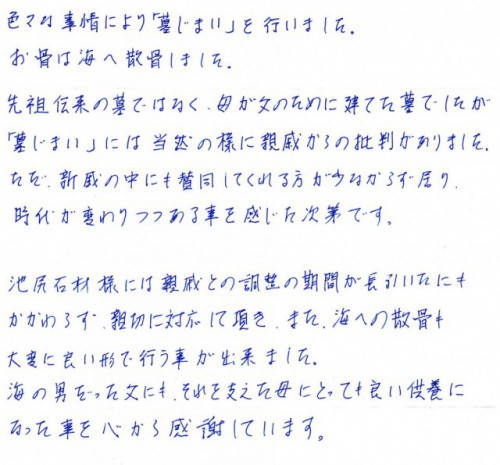 色々な事情により「墓じまい」を行いました。
お骨は海へ散骨しました。
先祖伝来の墓ではなく、母が父のために建てた墓でしたが
「墓じまい」には当然の様に親戚からの批判がありました。
ただ、新戚の中にも賛同してくれる方が少なからず居り、
時代が変わりつつある事を感じた次第です。
池尻石材様には親戚との調整の期間が長引いたにも
かかわらず、親切に対応して頂き、また、海への散骨も
大変に良い形で行う事が出来ました。
海の男だった父にも、それを支えた母にとっても良い供養に
なった事を心から感謝しています。